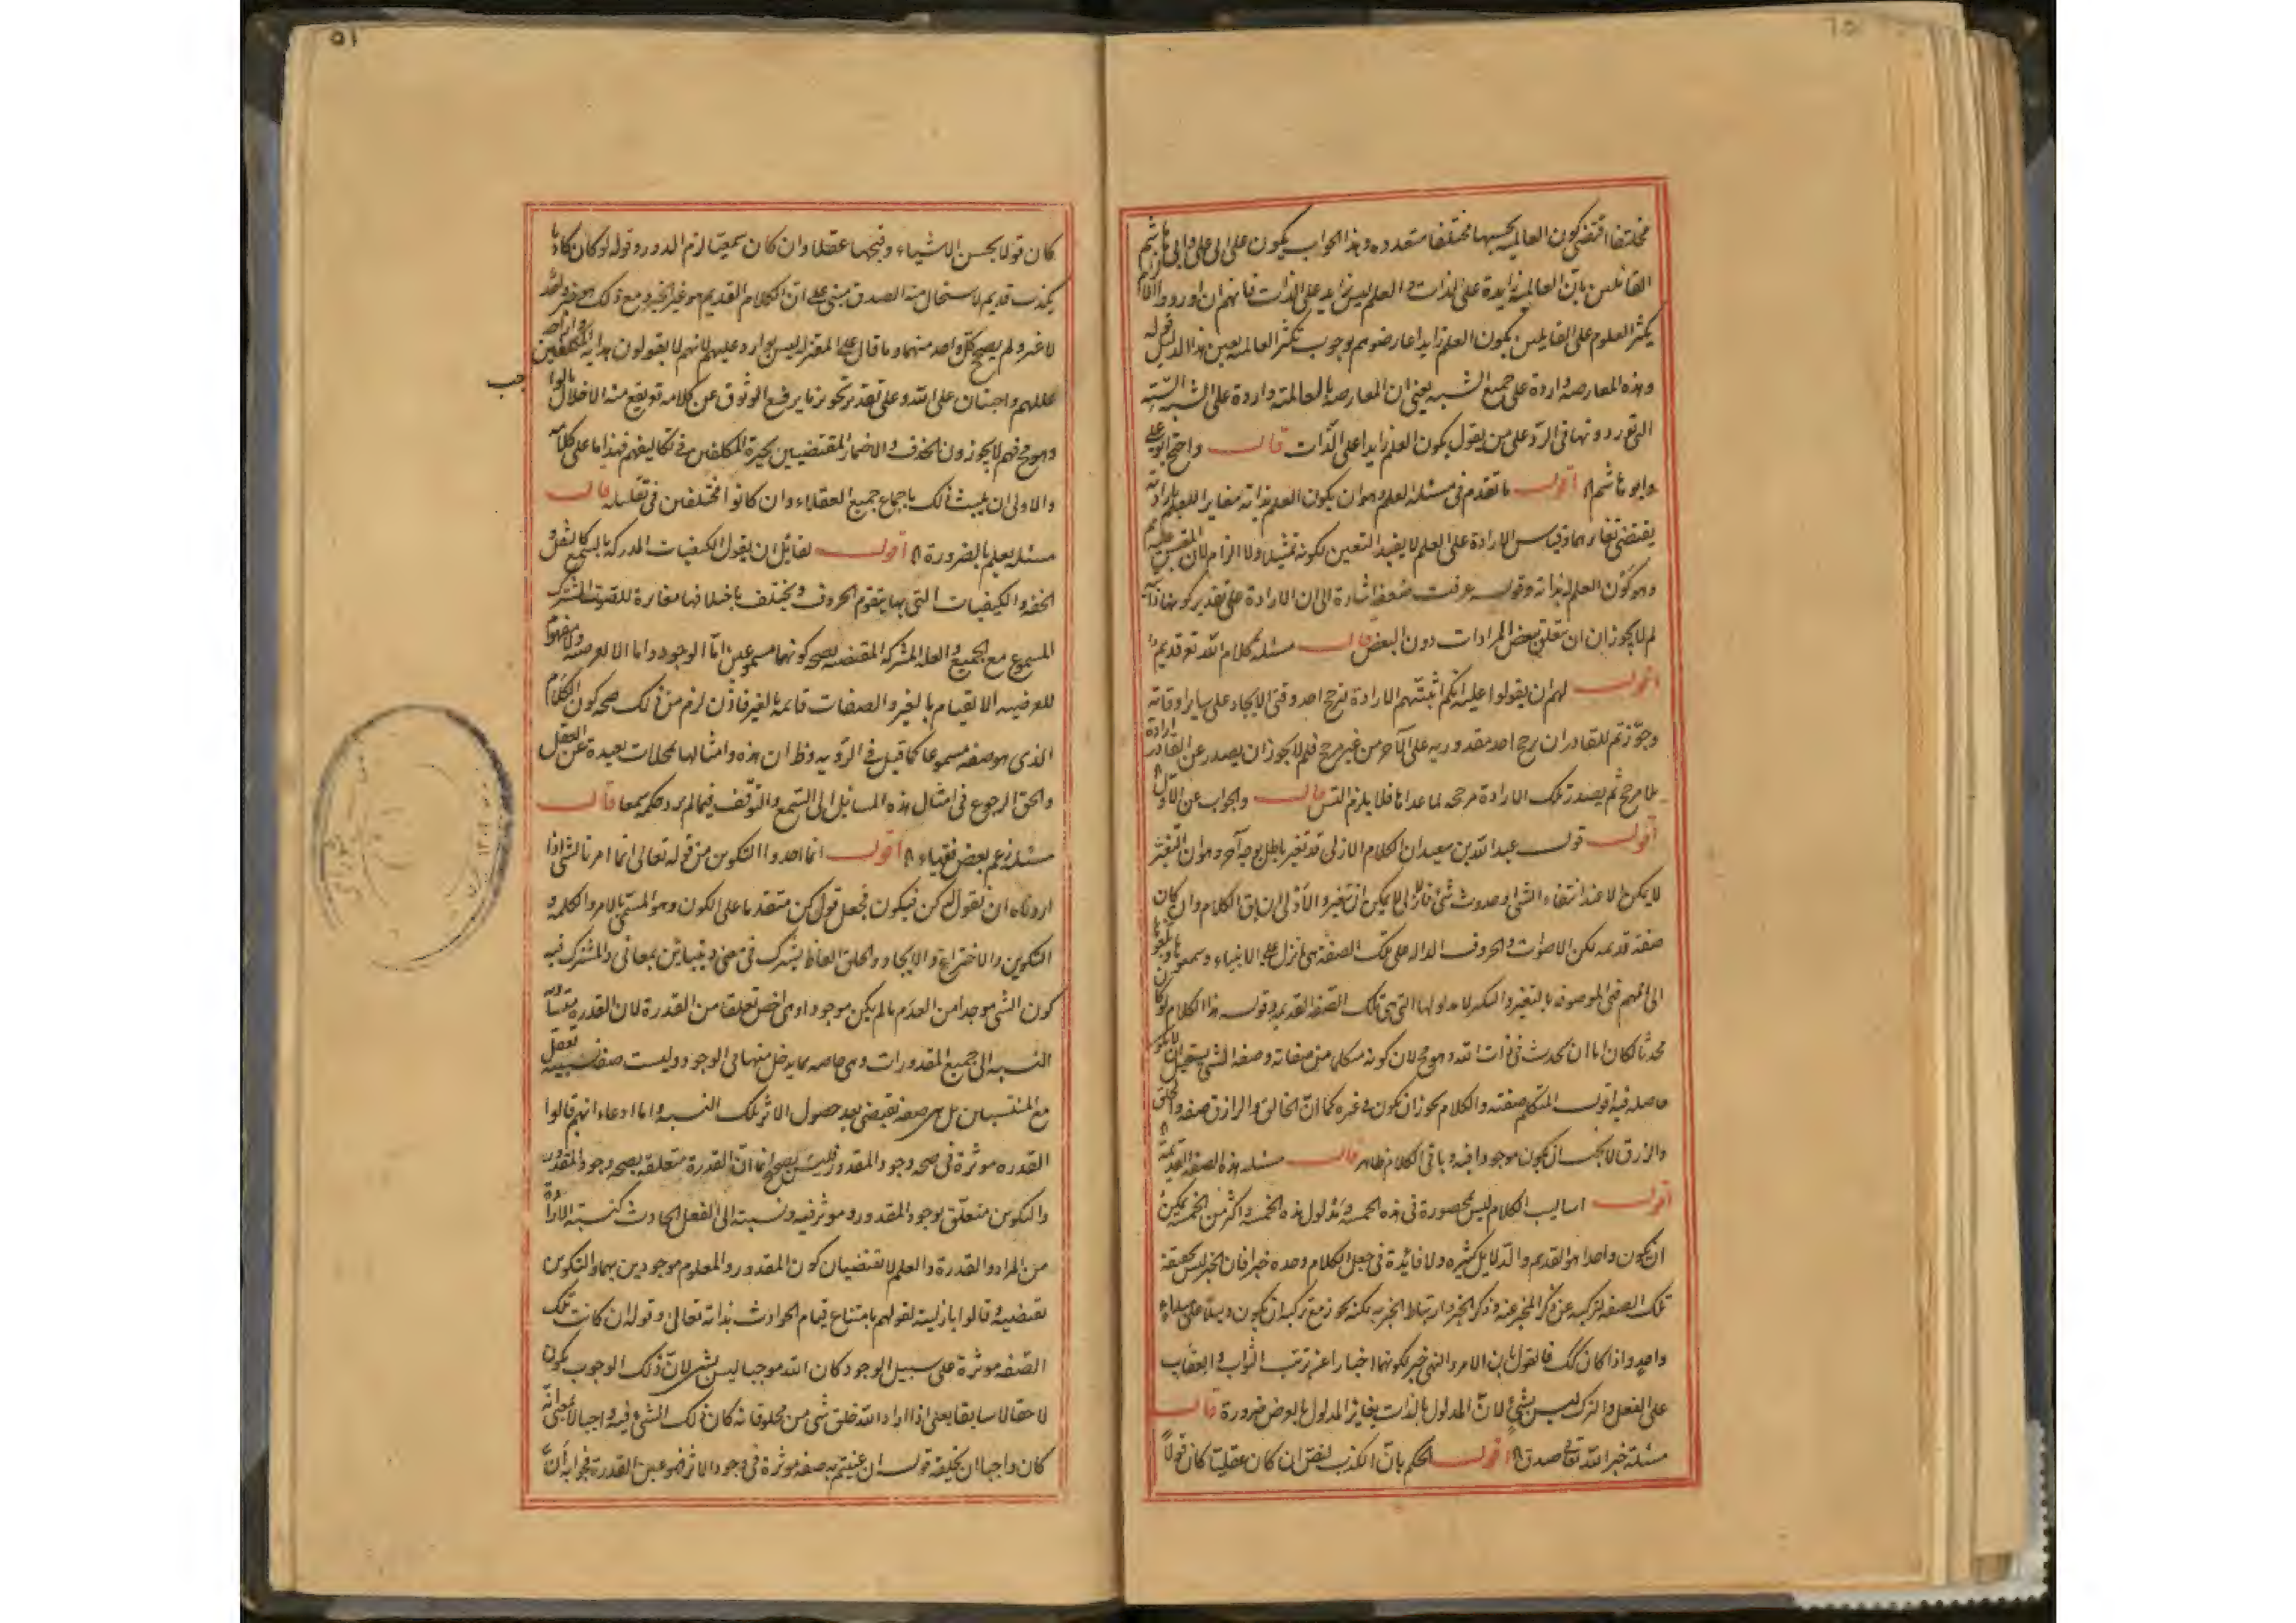 مختلفا اقتضى كون العالمية بحسبها مختلفا متعدده وهذا الجواب يكون على ابى على وابى هاشم
القائلين بان العالمية زايدة على الذات والعلم ليس زايد على الذات فانهم ان اوردوا الزام
تكثر العلوم على القايلين بكون العلم زايدا عارضوهم بوجوب تكثر العالمية بعين هذا الدليل قوله
وهذه المعارضه واردة على جميع الشبه يعنى ان المعارضه بالعالمية واردة على الشبه الستة
التى توردونها فى الرد على من يقول بكون العلم زايدا على الذات قال واحتج ابو على
وابو هاشم اقول ما تقدم فى مسئلة العلم وهو ان يكون العلم بذاته مغايرا للعلم بارادته
يقتضى تغايرهما وقياس الارادة على العلم لا يفيد التعين لكونه تمثيلا ولا الزام لان المقيس عليه
وهو كون العلم لذاته وقوله عرفت ضعفه اشارة الى ان الارادة على تقدير كونها ذاتيه
لم لا يجوز ان تتعلق ببعض المرادات دون البعض قال مسئله كلام الله تع قديم
اقول لهم ان يقولوا عليه انكم اثبتم الارادة ترجح احد وقتى الايجاد على ساير اوقاته
وجوزتم للقادر ان يرجح احد مقدوريه على الآخر من غير مرجح فلم لا يجوز ان يصدر عن القادر ارادة
بلا مرجح ثم يصدر تلك الارادة مرجحه لما عداها فلا يلزم التس قال والجواب عن الاول
اقول قول عبد الله بن سعيد ان الكلام الازلى قد تغير باطل بوجه آخر وهو ان التغير
لا يمكن الا عند انتفاء الشئ او حدوث شئ فالازلى لا يمكن ان يتغير والاولى ان يق الكلام وان كان
صفة قديمه لكن الاصوات والحروف الداله على تلك الصفة هى ما نزل على الانبياء وسمعوه وبلغوها
الى اممهم فهى الموصوفه بالتغير والتكثر لا مدلولها التى هى تلك الصفة القديمه وقوله هذا الكلام لو كان
محدثا لكان اما ان يحدث فى ذات الله وهو مح لان كونه متكلما من صفاته وصفة الشئ يستحيل ان لا يكون
حاصله فيه اقول المتكلم صفته والكلام يجوز ان يكون فى غيره كما ان الخالق والرازق صفه والخلق
والرزق لا يجب ان يكون موجودا فيه وباقى الكلام ظاهر قال مسئله هذه الصفه القديمة
اقول اساليب الكلام ليس محصورة فى هذه الخمسه ومدلول هذه الخمسه واكثر من الخمسه يمكن
ان يكون واحدا هو القديم والدلايل كثيره ولا فائدة فى جعل الكلام وحده خبرا فان الخبر ليس بحقيقة
تلك الصفه لتركبه عن ذكر المخبر عنه وذكر الخبر وارتباط الخبر به لكنه يجوز مع تركبه ان يكون دليلا على
واحد واذا كان كك فالقول بان الامر والنهى خبر لكونهما اخبارا عن ترتب الثواب والعقاب
على الفعل والترك ليس بشئ لان المدلول بالذات يغاير المدلول بالعرض ضرورة قال
مسئله خبر الله تع صدق اقول الحكم بان الكذب نقص ان كان عقليا كان قولا
كان قولا بحسن الاشياء وقبحها عقلا وان كان سمعيا لزم الدور وقوله لو كان كاذبا
بكذب قديم لاستحال منه الصدق مبنى على ان الكلام القديم هو غير الخبر ومع ذلك هو خبر واحد
لا غير ولم يصح كل واحد منهما وما قال على المعتزله ليس بوارد عليهم لانهم لا يقولون هداية المكلفين
عللهم واجبتان على الله وعلى تقدير تجويز ما يرفع الوثوق عن كلامه تع يقع منه الاخلال بالواجب
وهو مح فهم لا يجوزون الحذف والاضمار المقتضيين بحيرة المكلفين فى تكاليفهم فهذا ما على كلامه
والاولى ان يثبت ذلك باجماع جميع العقلاء وان كانوا مختلفين فى تعليله قال
مسئله يعلم بالضرورة اقول لقائل ان يقول الكيفيات المدركة بالسمع كالثقل و
الخفه والكيفيات التى بها يتقوم الحروف ويختلف باختلافها مغايرة للصوت المشترك
المسموع مع الجميع والعلة المشتركة المقتضيه لصحه كونهما مسموعين اما الوجود واما العرضيه ولا مفهوم
للعرضيه الا القيام بالغير والصفات قائمه بالغير فاذن لزم من ذلك صحه كون الكلام
الذى هو صفه مسموعا كما قيل فى الرؤيه وظ ان هذه وامثالها تمحلات بعيدة عن العقل
والحق الرجوع فى امثال هذه المسائل الى السمع والتوقف فيما لم يرد حكمه سمعا قال
مسئله زعم بعض فقهاء اقول انما اخذوا التكوين من قوله تعالى انما امرنا لشئ اذا
اردناه ان نقول له كن فيكون فجعل قوله كن متقدما على الكون وهو المسمى بالامر والكلمه و
التكوين والاختراع والايجاد والخلق الفاظ يشترك فى معنى ويتباين بمعانى والمشترك فيه
كون الشئ موجدا من العدم ما لم يكن موجودا وهى اخص تعلقا من القدرة لان القدرة متساوية
النسبه الى جميع المقدورات وهى خاصه بما يدخل منها فى الوجود وليست صفة نسبية تعقل
مع المنتسبين بل هى صفه تقتضى بعد حصول الاثر تلك النسبه واما ادعاء انهم قالوا
القدره موثرة فى صحه وجود المقدور فليس بصحيح انما ان القدرة متعلقه بصحه وجود المقدور
والتكوين متعلق بوجود المقدور وموثر فيه ونسبته الى الفعل الحادث كنسبة الارادة
من المراد والقدرة والعلم لا تقتضيان كون المقدور والمعلوم موجودين بهما والتكوين
تقتضيه وقالوا بازليته لقولهم بامتناع قيام الحوادث بذاته تعالى وقوله ان كانت تلك
الصفه موثرة على سبيل الوجود كان الله موجبا ليس بشئ لان ذلك الوجوب يكون
لاحقا لا سابقا يعنى اذا اراد الله خلق شئ من مخلوقاته كان ذلك الشئ فيه واجبا لا بمعنى انه
كان واجبا ان يخلقه قوله ان عنيتم به صفه موثرة فى وجود الاثر فهو عين القدرة فجوابه ان